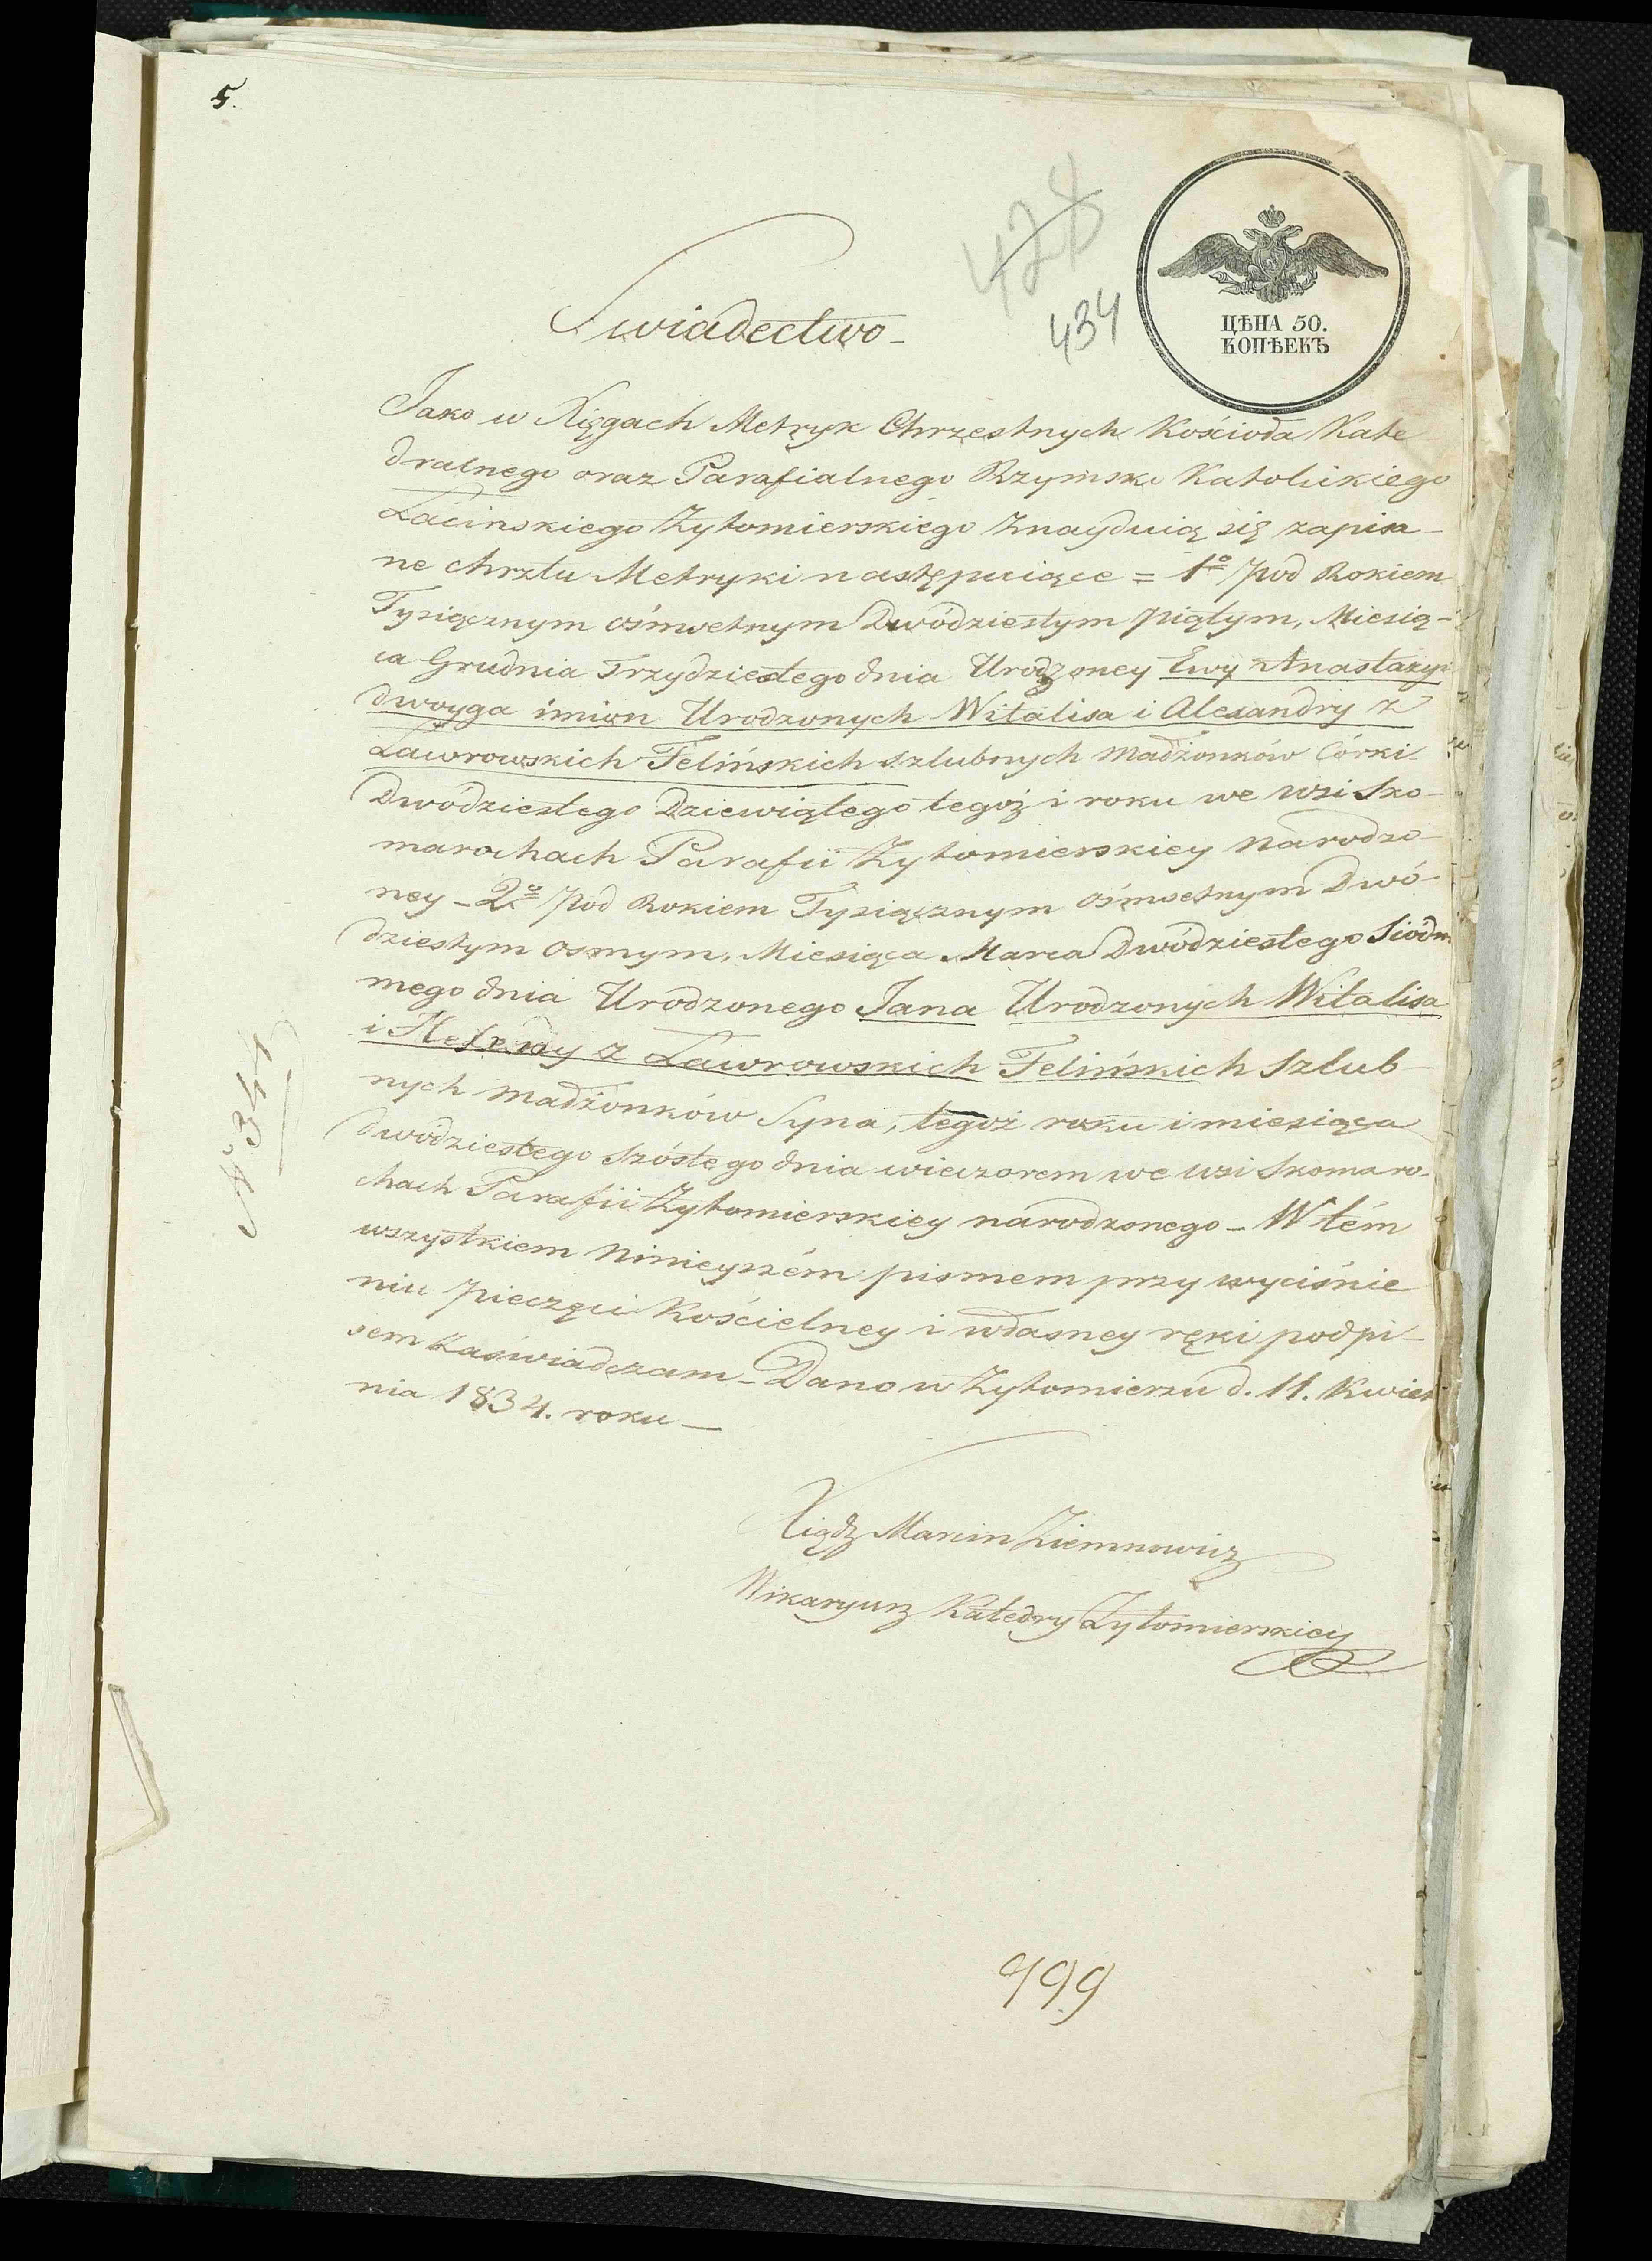 5.
428
434
ЦѢНА 50.
КОПѢЕКЪ
Swiadectwo -
Jako w Xięgach Metryk Chrzestnych Kościoła Kate
dralnego oraz Parafialnego Rzymsko Katolickiego
Łacinskiego Żytomierskiego Znayduią się zapisa-
ne chrztu Metryki następuiące = 1º pod Rokiem
Tysiącznym ośmsetnym Dwódziestym piątym, Miesią-
ca Grudnia Trzydziestego dnia Urodzoney Ewy Anastazyi
dwoyga imion Urodzonych Witalisa i Alexandry z
Laworowskich Felińskich szlubnych Małżonków Córki
Dwódziestego Dziewiątego tegoż i roku we wsi Sko-
marochach Parafii Żytomierskiey narodzo-
ney - 2º pod Rokiem Tysiącznym ośmsetnym Dwó-
dziestym osmym, Miesiąca Marca Dwódziestego Siódm
mego dnia Urodzonego Jana Urodzonych Witalisa
i z Laworowskich Felińskich Szlub-
nych Małżonków Syna, tegoż roku i miesiąca
dwódziestego szóstego dnia wieczorem we wsi Skomaro-
chach Parafii Żytomierskiey narodzonego - W tém
wszystkiem ninieyszém pismem przy wyciśnie
niu pieczęci Kościelney i własney ręki podpi-
sem Zaświadczam - Dano w Żytomierzu d. 11. Kwiet
nia 1834. roku -
Xiądz Marcin Ziemnowicz
Wikaryusz Katedry Żytomierskiey
999